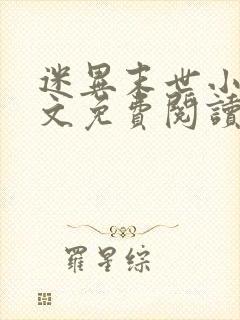 迷異末世小
文免費閱讀
羅星綜